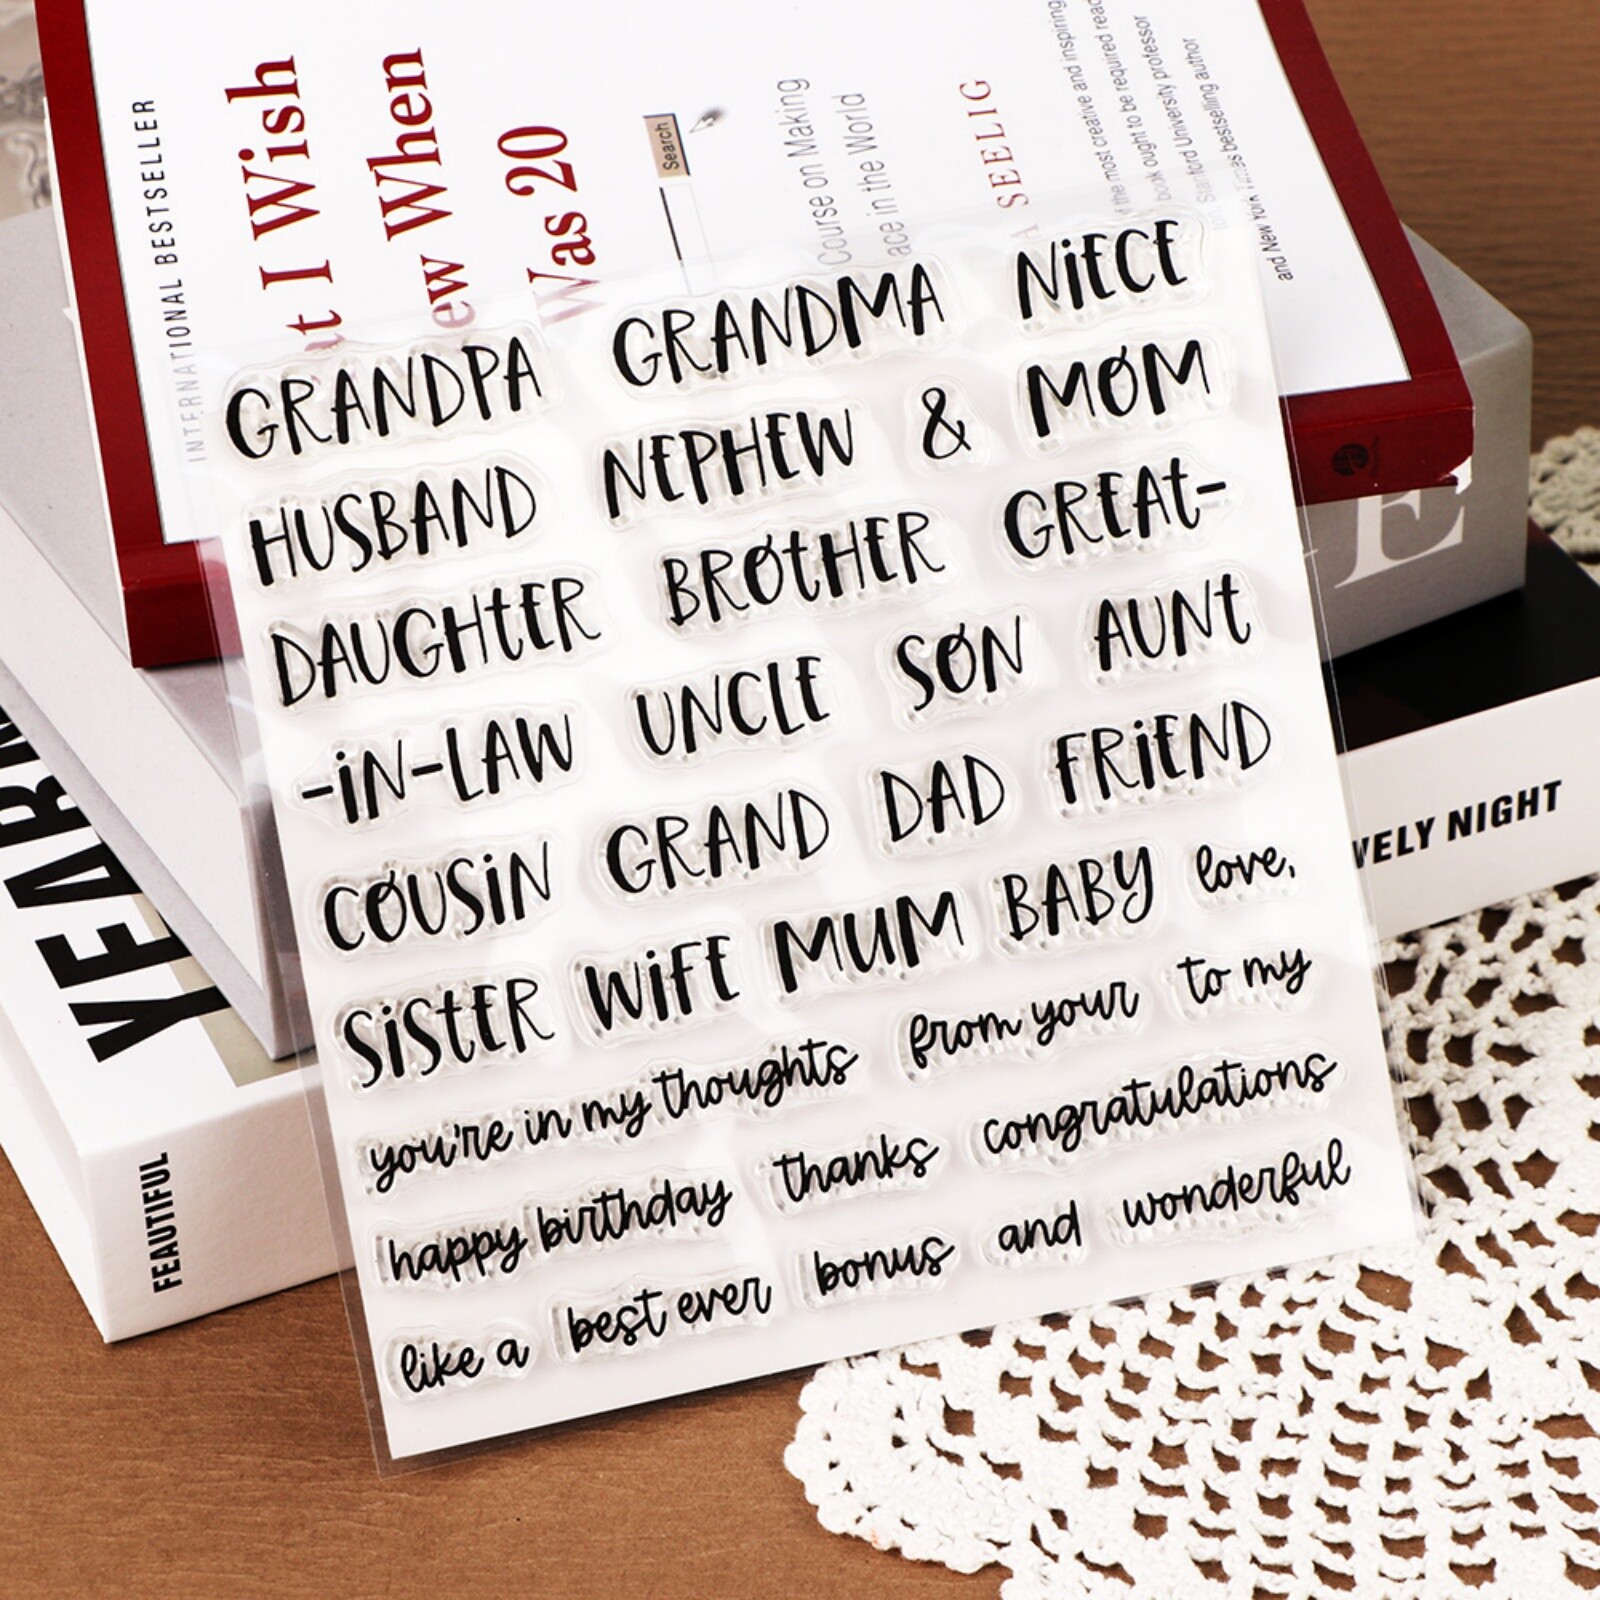 INTERNATIONAL BESTSELLER
I Wish
ew When
Was 20
Search
Course on Making
ace in the World
A SEELIG
the most creative and inspiring
book ought to be required read
University professor
and New York Times bestselling author
GRANDPA GRANDMA NIECE
HUSBAND NEPHEW & MOM
DAUGHtER BROtHER GREAt-
-iN-LAW UNCLE SON AUNt
COUSiN GRAND DAD FRiEND
SiStER WiFE MUM BABY love,
you're in my thoughts from your to my
happy birthday thanks congratulations
like a best ever bonus and wonderful
E
VELY NIGHT
YEARN
FEAUTIFUL